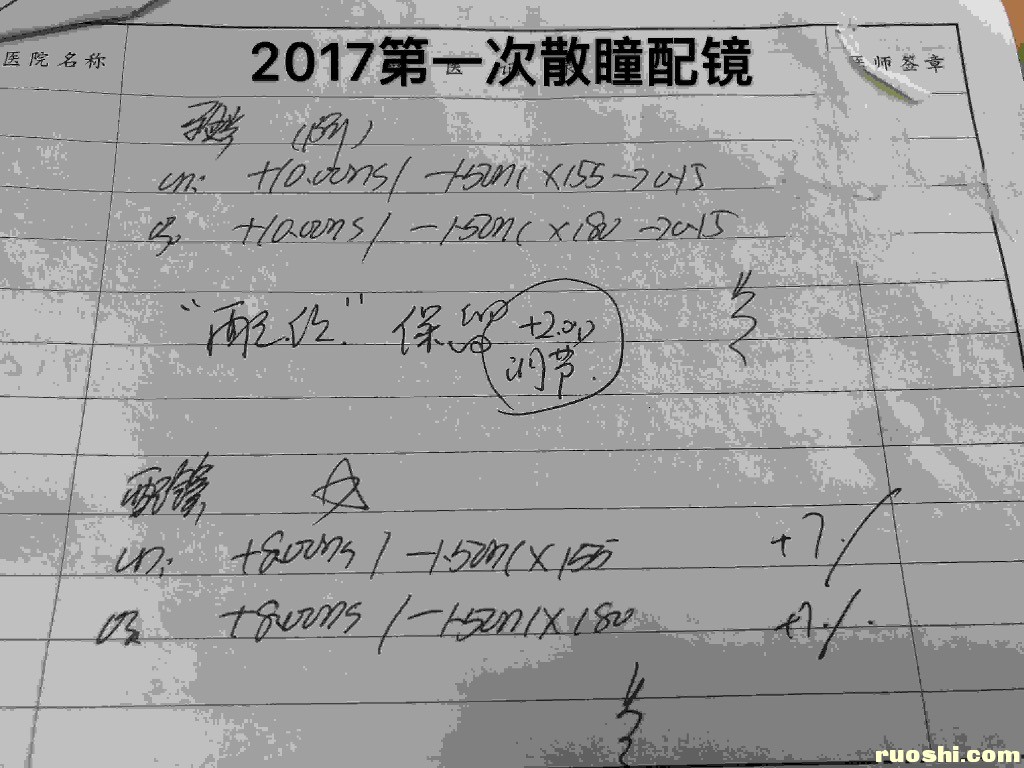 医院名称
2017第一次散瞳配镜
医师签章
OD: +10.00DS/ -1.50DC×155→0.15
OS: +10.00DS/ -1.50DC×180→0.15
"配位" 保
+2.00
调节.
配镜
OD: +8.00DS/ -1.50DC×155
+7
OS: +8.00DS/ -1.50DC×180
+7
ruoshi.com